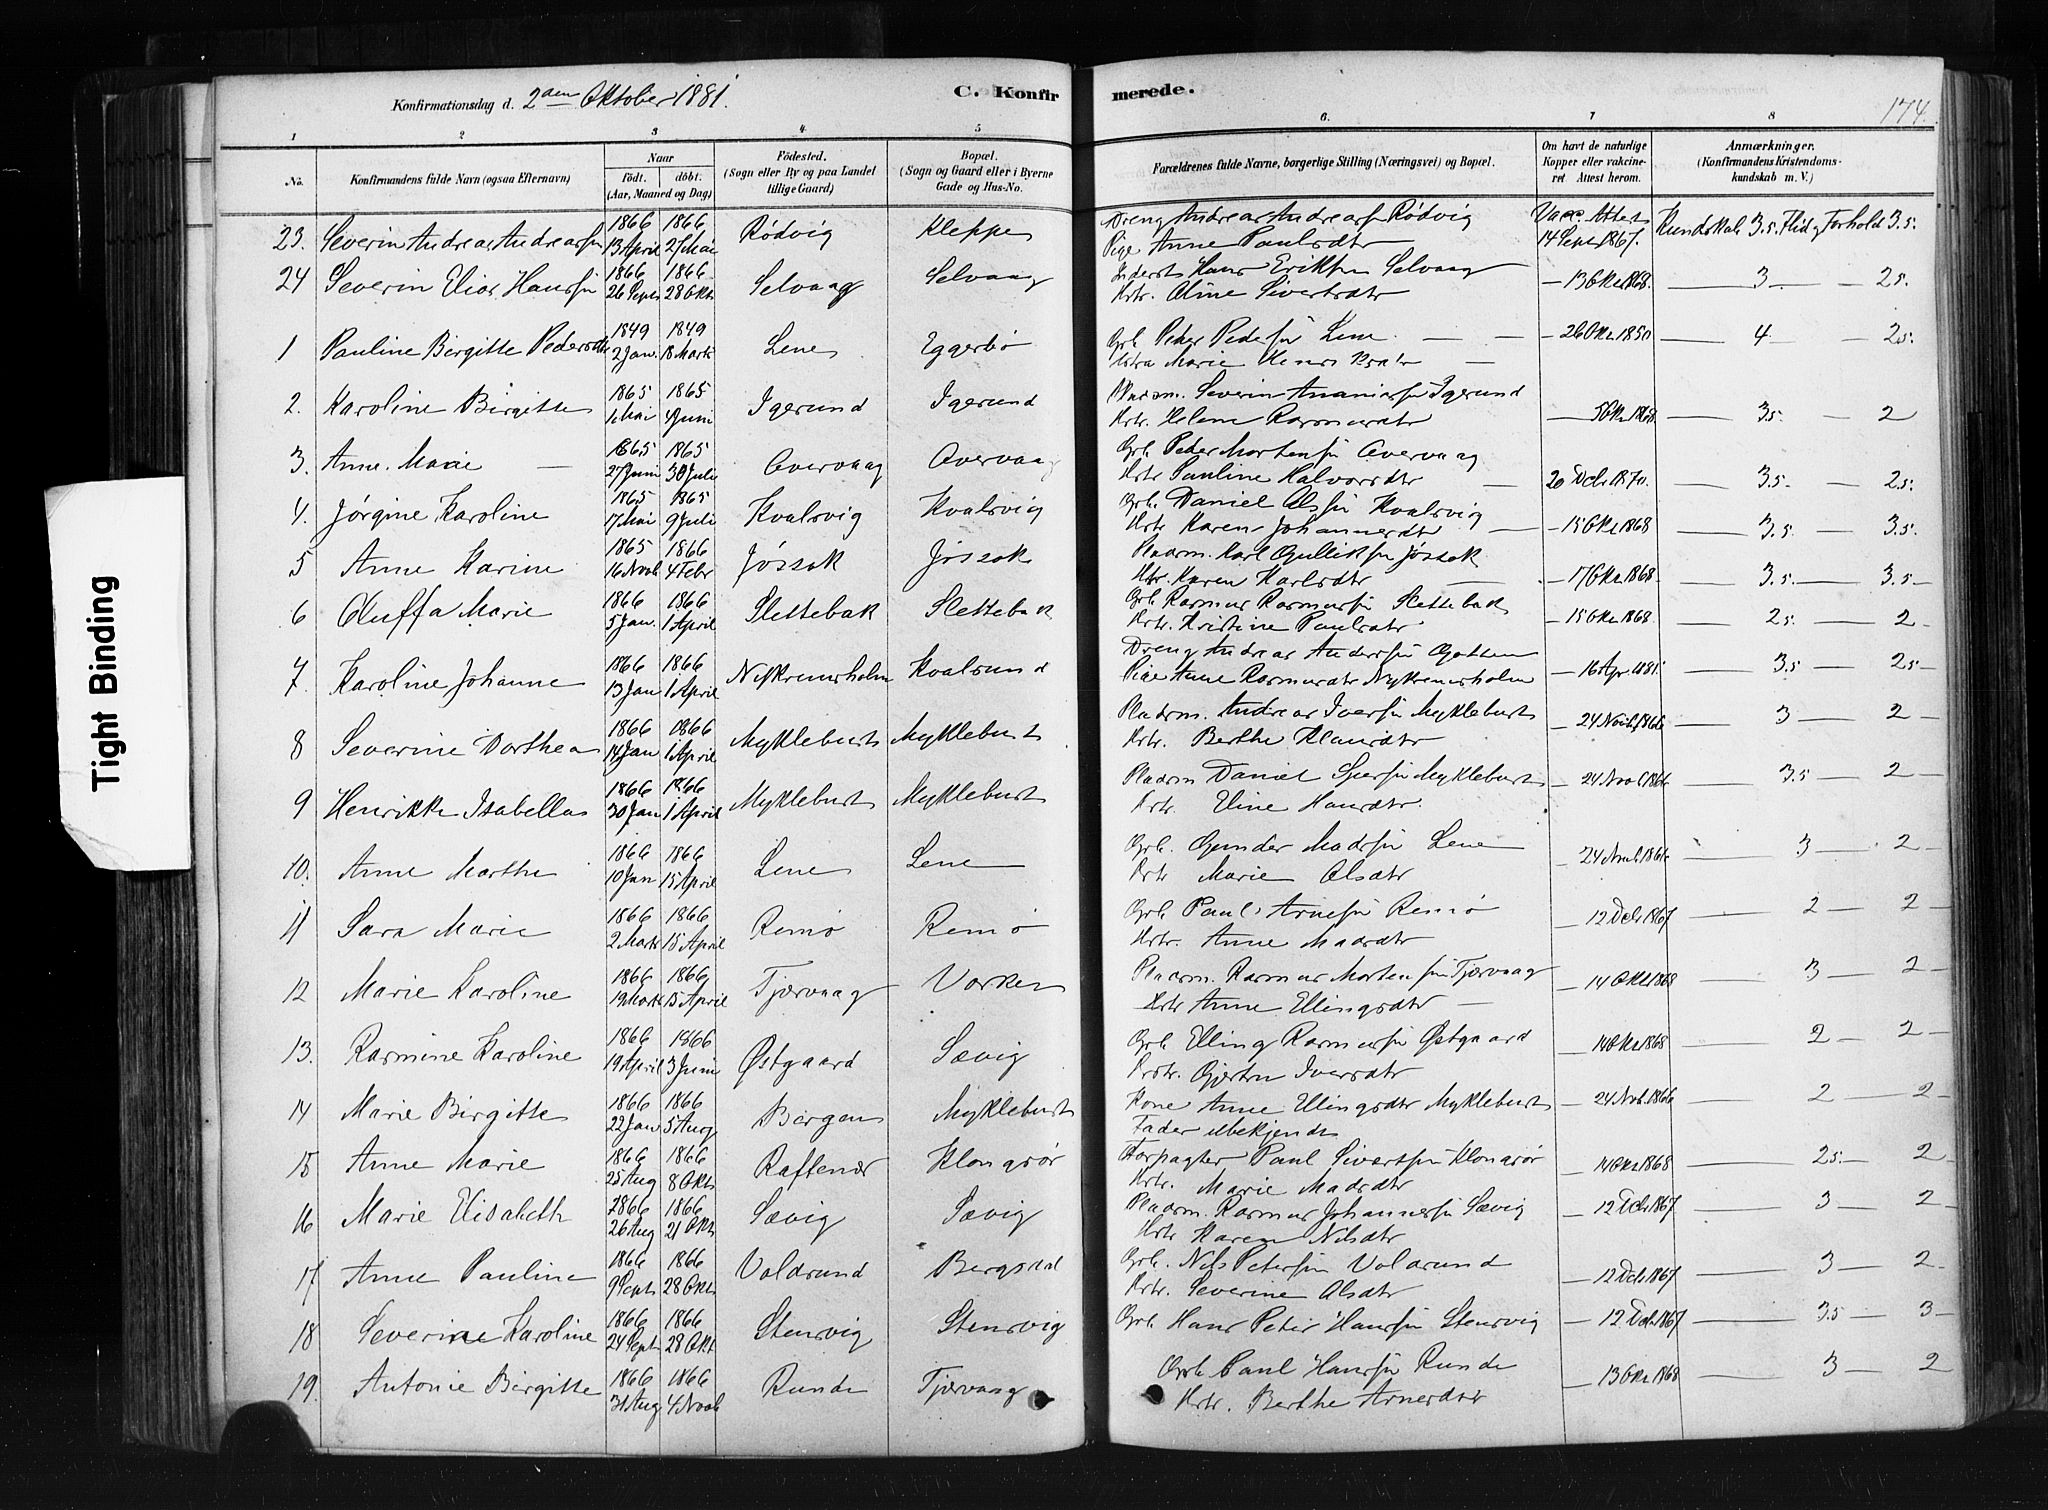 Konfirmationsdag d. 2den Oktober 1881.
C. Konfirmerede.
174.
1 2 3 4. 5 6. 7 8
No. Konfirmandens fulde Navn (ogsaa Efternavn) Naar Født. døbt. (Aar, Maaned og Dag) Fødested. (Sogn eller By og paa Landet tillige Gaard) Bopæl. (Sogn og Gaard eller i Byerne Gade og Hus-No. Forældrenes fulde Navne, borgerlige Stilling (Næringsvei) og Bopæl. Om havt de naturlige Kopper eller vakcineret Attest herom. Anmærkninger. (Konfirmandens Kristendomskundskab m. V.)
23. Severin Andreas Andreassen 1866 13 April 1866 2 Mai Rødvig Kleppe Dreng Andreas Andreassen Rødvig Vacc. Attest 14 Sept 1867. Kundskab 3.5. Flid og Forhold 3.5.
Pige Anne Paulsdtr
24 Severin Elias Hanssen 1866 26 Sept 1866 28 Okt Selvaag Selvaag Inderst Hans Eriksen Selvaag — 13 Okt 1868. — 3 — 2.5.
Hstr. Oline Sivertsdtr
1 Pauline Birgitte Pedersdtr 1849 2 Jan. 1849 18 Marts Lene Eggesbø Grb. Peder Pedersen Lene — — 26 Okt 1850 — 4. — 2.5.
Marie
2. Karoline Birgitte 1865 1 Mai 1865 4 Juni Igesund Igesund Pladsm. Severin Ananiassen Igesund
Hstr. Helene Rasmusdtr — 5 Okt 1868. — 3.5. — 2
3. Anne Marie — 1865 27 Juni 1865 30 Juli Avervaag Avervaag Grb. Peder Mortensen Avervaag
Hstr Pauline Halvorsdtr — 20 Dcb. 1870. — 3.5. — 2.5.
4. Jørgine Karoline 1865 17 Mai 1865 9 Juli Kvalsvig Kvalsvig Grb. Daniel Olssen Kvalsvig
Hstr Karen Johannesdtr — 15 Okt 1868 — 3.5 — 3.5.
5 Anne Karine 1865 16 Novb 1866 4 Febr Jøssok Jøssok Pladsm. Karl Gulliksen Jøssok
Hstr. Karen Karlsdtr — 17 Okt 1868. — 3.5. — 3.5
6 Oluffa Marie 1866 5 Jan. 1866 1 April Slettebak Slettebak Grb Rasmus Rasmussen Slettebak
Hstr. Kristine Paulsdtr — 15 Okt 1868. — 2.5. — 2
7. Karoline Johanne 1866 13 Jan 1866 1 April Nykremsholm Kvalsund Dreng Andreas Anderssen
Pige Anne Rasmusdtr Nykremsholm — 16 Apr. 1881. — 3.5 — 2.5
8 Severine Dorthea 1866 14 Jan 1866 1 April Myklebust Myklebust Pladsm. Andreas Iverssen Myklebust — 24 Novb. 1866 — 3 — 2
Hstr. Berthe Klausdtr
9 Henrikke Isabella 1866 30 Jan 1866 1 April Myklebust Myklebust Pladsm Daniel Myklebust — 24 Novb 1866 — 3.5 — 2
Hstr. Eline Hansdtr.
10. Anne Marthe 1866 10 Jan 1866 15 April Lene Lene Grb. Gunder Madssen Lene — 24 Novb. 1866. — 3 — 2
Hstr Marie Olsdtr
11 Sara Marie 1866 2 Marts 1866 15 April Remø Remø Grb Paul Arnesen Remø — 12 Dcb 1867 — 2 — 2
Hstr. Anne Madsdtr
12 Marie Karoline 1866 19 Marts 1866 15 April Tjærvaag Vorken Pladsm. Rasmus Mortenssen Tjærvaag — 14 Okt 1868 — 3 — 2
Hstr Anne Ellingsdtr —
13. Rasmine Karoline 1866 19 April 1866 3 Juni Østgaard Sævig Grb. Elling Rasmussen Østgaard — 14 Okt 1868 — 2 — 2
Hstr. Gjertru Iversdtr
14 Marie Birgitte 1866 22 Jan 1866 5 Aug Bergen Myklebust Kone Anne Ellingsdtr Myklebust — 24 Nob. 1866 — 2 — 2
Fader ubekjendt
15 Anne Marie 1866 25 Aug 1866 8 Okt Raftenæs Klongsør Forpagter Paul Sivertsen Klongsør — 14 Okt 1868 — 2.5. — 2
Hstr. Marie Madsdtr
16 Marie Elisabeth 1866 26 Aug 1866 21 Okt Sævig Sævig Pladsm. Rasmus Johannessen Sævig — 12 Dcb 1867 — 3 — 2
Hstr Karen Nilsdtr
17 Anne Pauline 1866 9 Sept 1866 28 Okt Voldsund Bergsdal Grb. Nils Petersen Voldsund — 12 Dcb 1867 — 3 — 2
Hstr. Severine Olsdtr
18 Severine Karoline 1866 24 Sept 1866 28 Okt. Stensvig Stensvig Grb. Hans Peter Hanssen Stensvig — 12 Dcb. 1867 — 3.5 — 3
19. Antonie Birgitte 1866 31 Aug 1866 4 Novb Runde Tjærvaag Grb Paul Hanssen Runde — 13 Okt 1868 — 3 — 2
Hstr. Berthe Arnesdtr
Tight Binding